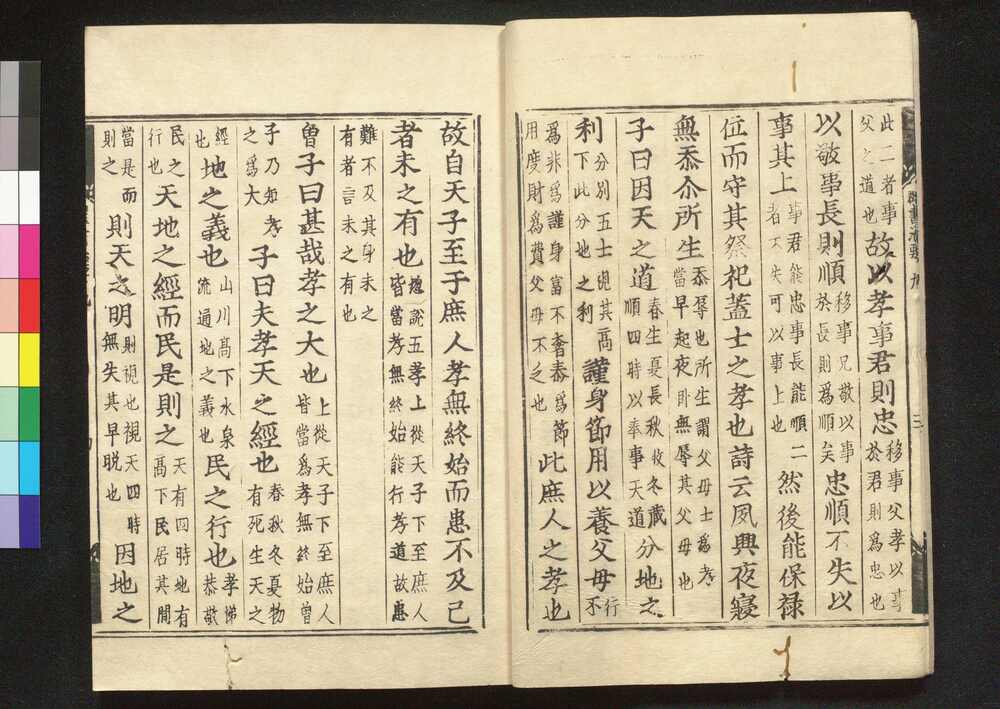 群書治要 九
三
此二者事父之道也故以孝事君則忠移事父孝以事於君則爲忠也
以敬事長則順移事兄敬以事於長則爲順矣忠順不失以
事其上事君能忠事長能順二者不失可以事上也然後能保禄
位而守其祭祀蓋士之孝也詩云夙興夜寢
無忝尒所生忝辱也所生謂父母士爲孝當早起夜卧無辱其父母也
子曰因天之道春生夏長秋收冬藏順四時以奉事天道分地之
利分別五土視其高下此分地之利謹身節用以養父母行不
爲非爲謹身富不奢泰爲節用度財爲費父母不乏也此庶人之孝也
故自天子至于庶人孝無終始而患不及己
者未之有也總說五孝上從天子下至庶人皆當孝無終始能行孝道故患
難不及其身未之有者言未之有也
曾子曰甚哉孝之大也上從天子下至庶人皆當爲孝無終始曾
子乃知孝之爲大子曰夫孝天之經也春秋冬夏物有死生天之
經也地之義也山川高下水泉流通地之義也民之行也孝悌恭敬
民之行也天地之經而民是則之天有四時地有高下民居其間
當是而則之則天之明則視也視天四時無失其早晚也因地之